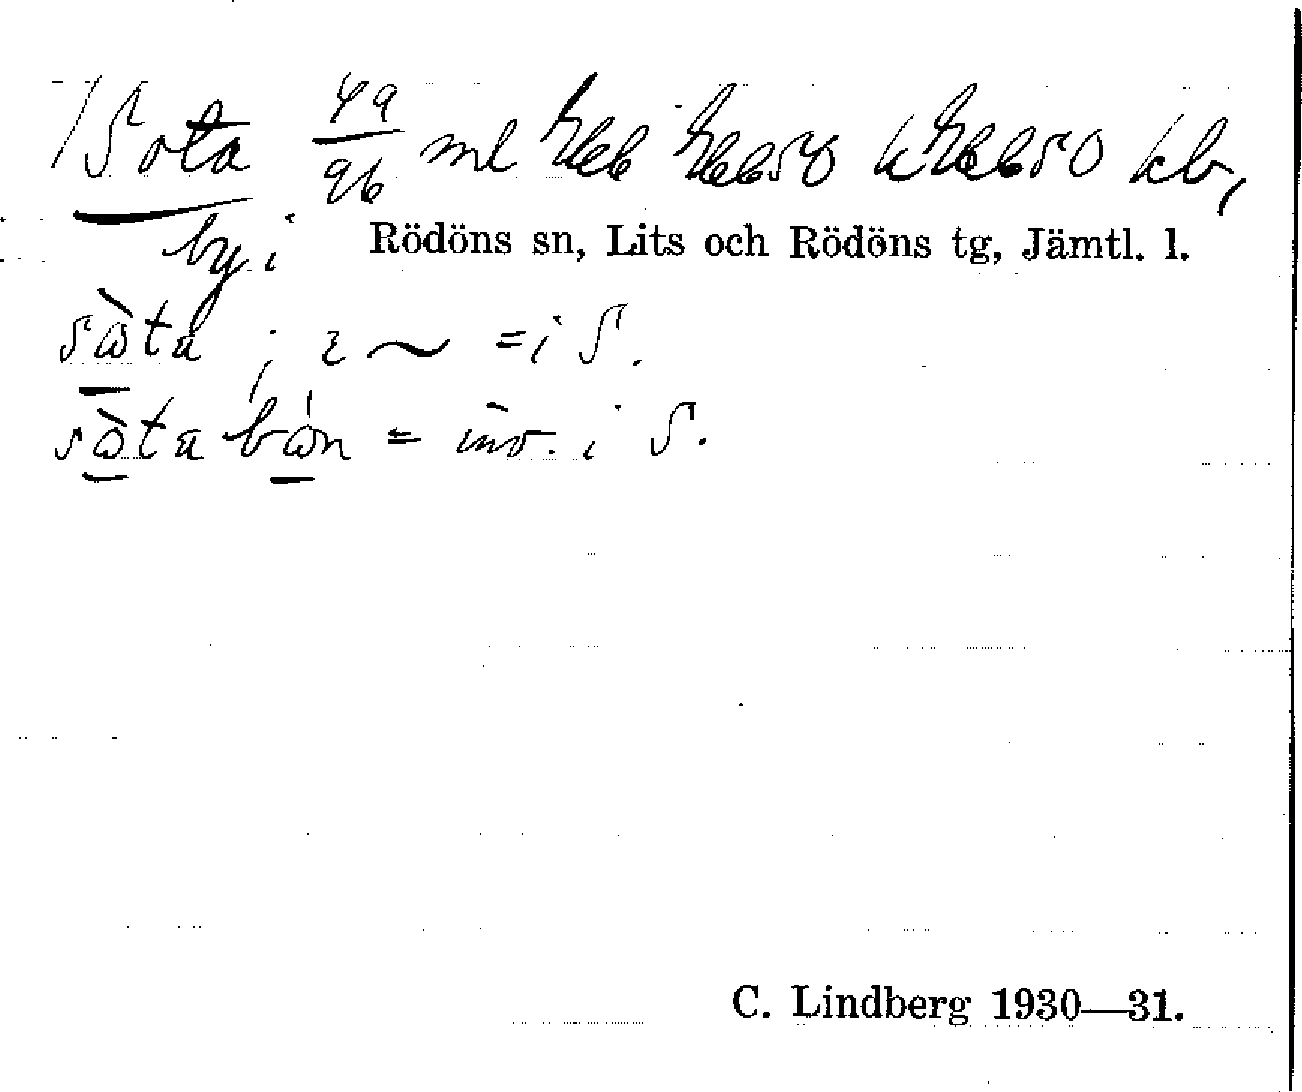 Sota 49/96 ml kb,
by i Rödöns sn, Lits och Rödöns tg, Jämtl. l.
sòta ; i ~ = i S.
sòta bón = inv. i S.
C. Lindberg 1930—31.